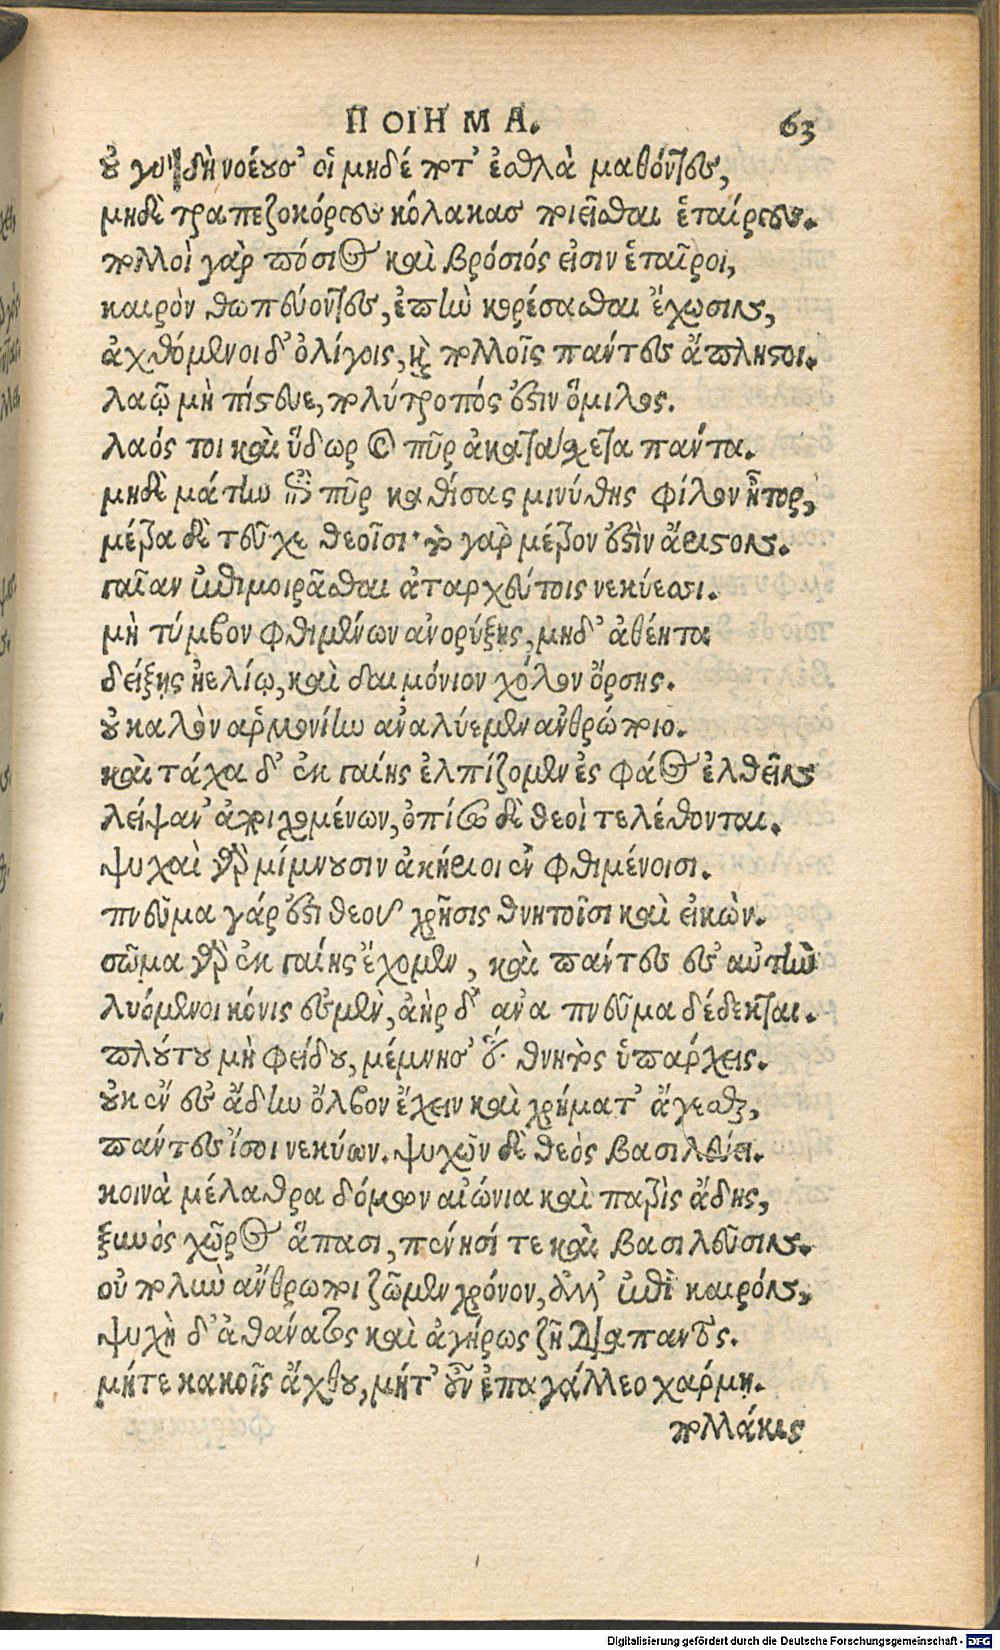 ΠΟΙΗΜΑ. 63
οὐ γὰρ δὴ νοέουσ' οἱ μηδέ ποτ' ἐσθλὰ μαθόντες,
μηδὲ τραπεζοκόρους κόλακας ποιεῖσθαι ἑταίρους.
πολλοὶ γὰρ πόσιος καὶ βρόσιός εἰσιν ἑταῖροι,
καιρὸν θωπεύοντες, ἐπὴν κορέσασθαι ἔχωσιν,
ἀχθόμενοι δ' ὀλίγοις, καὶ πολλοῖς πάντες ἄπληστοι.
λαῷ μὴ πίστευε, πολύτροπός ἐστιν ὅμιλος.
λαός τοι καὶ ὕδωρ καὶ πῦρ ἀκατάσχετα πάντα.
μηδὲ μάτην ἐπὶ πῦρ καθίσας μινύθης φίλον ἦτορ,
μέτρα δὲ τεῦχε θεοῖσι· τὸ γὰρ μέτρον ἐστὶν ἄριστον.
γαῖαν ἐπιμοιρᾶσθαι ἀταρχύτοις νεκύεσσι.
μὴ τύμβον φθιμένων ἀνορύξῃς, μηδ' ἀθέατα
δείξῃς ἠελίῳ, καὶ δαιμόνιον χόλον ὄρσῃς.
οὐ καλὸν ἁρμονίην ἀναλύεμεν ἀνθρώποιο.
καὶ τάχα δ' ἐκ γαίης ἐλπίζομεν ἐς φάος ἐλθεῖν
λείψαν' ἀποιχομένων, ὀπίσω δὲ θεοὶ τελέθονται.
ψυχαὶ γὰρ μίμνουσιν ἀκήριοι ἐν φθιμένοισι.
πνεῦμα γάρ ἐστι θεοῦ χρῆσις θνητοῖσι καὶ εἰκών.
σῶμα γὰρ ἐκ γαίης ἔχομεν, καὶ πάντες ἐς αὐτὴν
λυόμενοι κόνις ἐσμέν, ἀὴρ δ' ἀνα πνεῦμα δέδεκται.
πλούτου μὴ φείδου, μέμνησ' ὅτι θνητὸς ὑπάρχεις.
οὐκ ἔν ἐς ἅδην ὄλβον ἔχειν καὶ χρήματ' ἄγεσθαι,
πάντες ἴσοι νεκύων. ψυχῶν δὲ θεὸς βασιλεύει.
κοινὰ μέλαθρα δόμων αἰώνια καὶ πατρὶς ᾅδης,
ξυνὸς χῶρος ἅπασι, πένησί τε καὶ βασιλεῦσιν.
οὐ πολὺν ἄνθρωποι ζῶμεν χρόνον, ἀλλ' ἐπὶ καιρόν,
ψυχὴ δ' ἀθάνατος καὶ ἀγήρως ζῇ διαπαντός.
μήτε κακοῖς ἄχθου, μήτ' οὖν ἐπαγάλλεο χάρμῃ.
πολλάκις
Digitalisierung gefördert durch die Deutsche Forschungsgemeinschaft - DFG